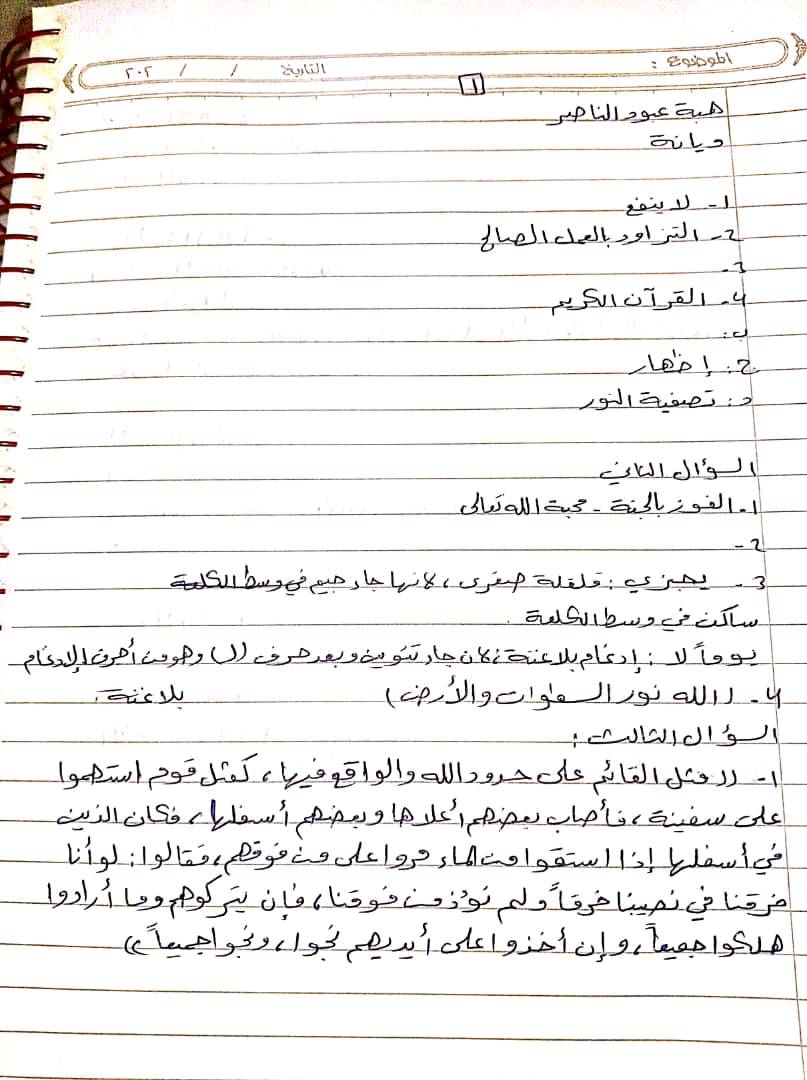 الموضوع : التاريخ / / ٢٠٢
١
هبة عبود الناصر
ديانة
١- لا ينفع
٢- التزاود بالعمل الصالح
٣-
٤- القرآن الكريم
ب:
ج: إظهار
د: تصفية النور
السؤال الثاني
١- الفوز بالجنة - محبة الله تعالى
٢-
٣- يجزي : قلقلة صغرى ، لانها جاء جيم في وسط الكلمة
ساكن في وسط الكلمة .
يوماً لا : إدغام بلا غنة ، لان جاء تنوين وبعد حرف (ل) وهو من أحرف الإدغام
بلا غنة .
٤- (الله نور السماوات والأرض)
السؤال الثالث :
١- (( مثل القائم على حدود الله والواقع فيها ، كمثل قوم استهموا
على سفينة ، فأصاب بعضهم أعلاها وبعضهم أسفلها ، فكان الذين
في أسفلها إذا استقوا من الماء مروا على من فوقهم ، فقالوا : لو أنا
خرقنا في نصيبنا خرقاً ولم نؤذ من فوقنا ، فإن يتركوهم وما أرادوا
هلكوا جميعاً ، وإن أخذوا على أيديهم نجوا ، ونجوا جميعاً ))